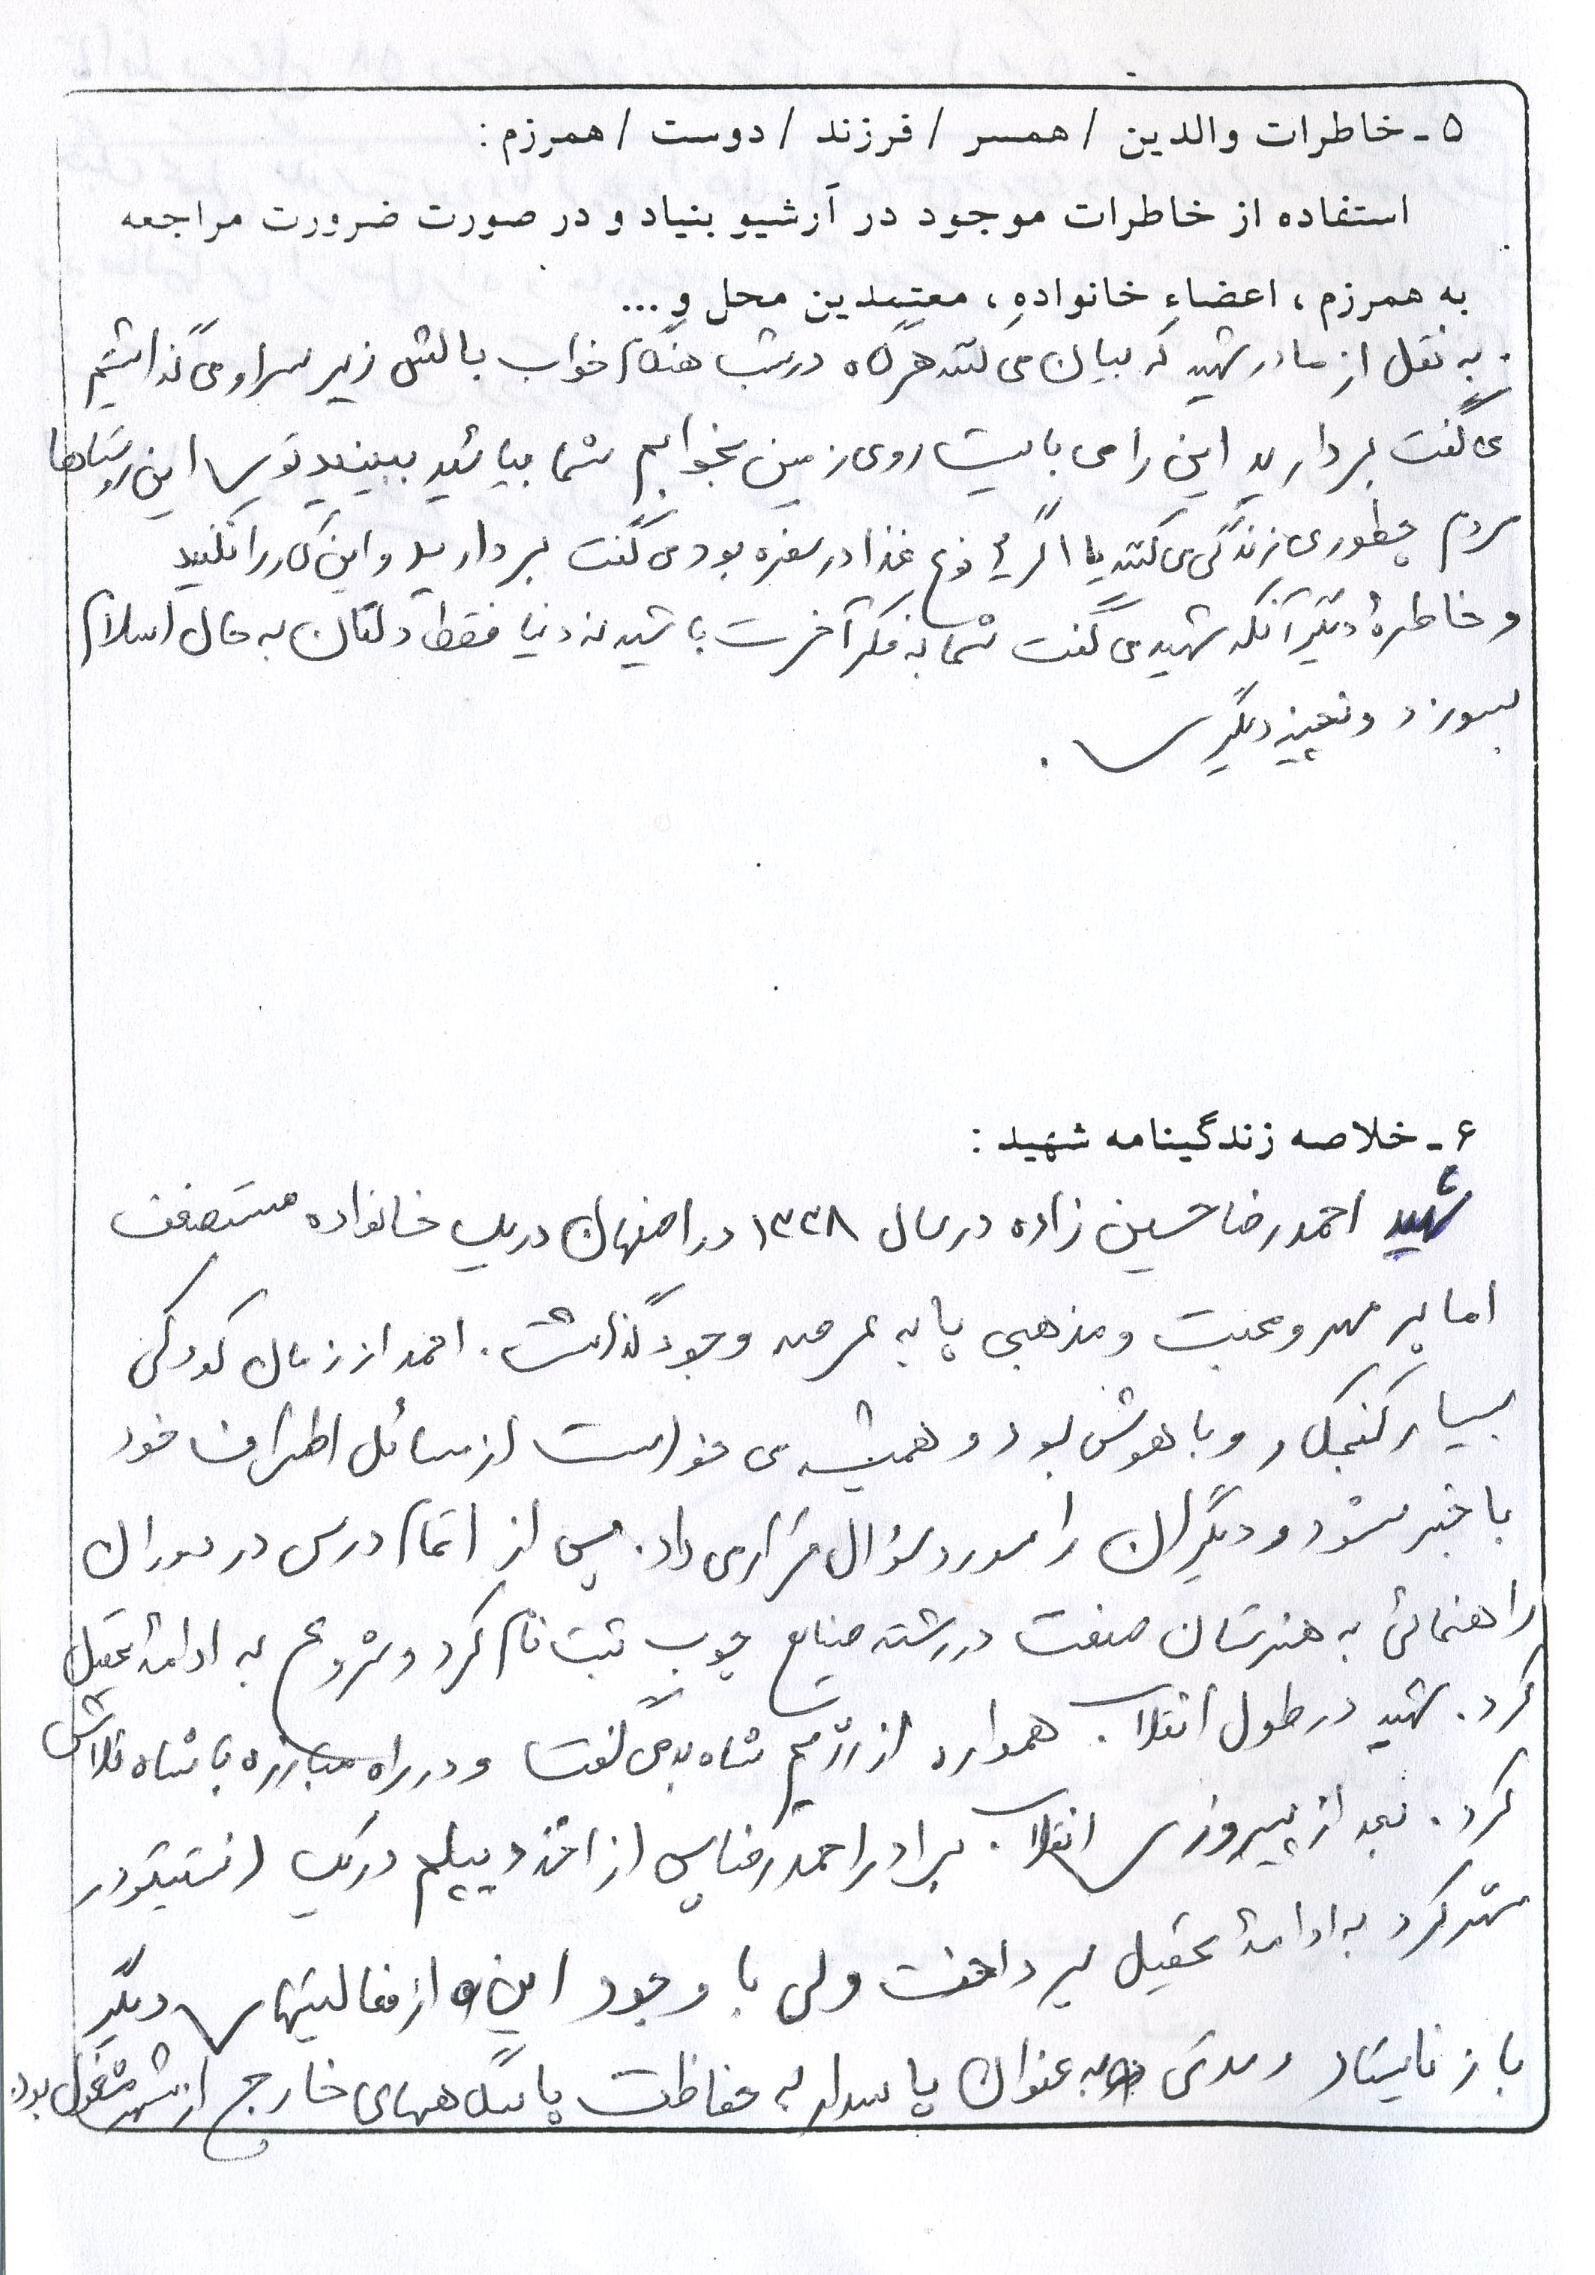 ۵ - خاطرات والدین / همسر / فرزند / دوست / همرزم :
استفاده از خاطرات موجود در آرشیو بنیاد و در صورت ضرورت مراجعه
به همرزم ، اعضاء خانواده ، معتمدین محل و ...
به نقل از مادر شهید که بیان می کنند هرگاه در شب هنگام خواب بالش زیر سر او می گذاشتیم
می گفت بردارید این را می بایست روی زمین بخوابم شما بیائید ببینید توی این روستاها
مردم چطوری زندگی می کنند یا اگر نوع غذا در سفره بود می گفت بردارید و این کار را نکنید
و خاطرهٔ دیگر آنکه شهید می گفت شما به فکر آخرت باشید نه دنیا فقط دلتان به حال اسلام
بسوزد و نه چیز دیگری .
۶ - خلاصه زندگینامه شهید :
شهید احمدرضا حسین زاده در سال ۱۳۳۸ در اصفهان در یک خانواده مستضعف
اما پر مهر و محبت و مذهبی پا به عرصه وجود گذاشت . احمد از زمان کودکی
بسیار کنجکاو و باهوش بود و همیشه می خواست از مسائل اطراف خود
باخبر شود و دیگران را مورد سؤال قرار می داد . پس از اتمام درس در دوران
راهنمائی به هنرستان صنعت در رشته صنایع چوب ثبت نام کرد و شروع به ادامهٔ تحصیل
کرد . شهید در طول انقلاب همواره از رژیم شاه بد می گفت و در راه مبارزه با شاه تلاش
کرد . بعد از پیروزی انقلاب برادر احمدرضا پس از اخذ دیپلم در یک انستیتو در
شهرکرد به ادامهٔ تحصیل پرداخت ولی با وجود این از فعالیتهای دیگر
باز نایستاد و مدتی به عنوان پاسدار به حفاظت پاسگاههای خارج از شهر مشغول بود .